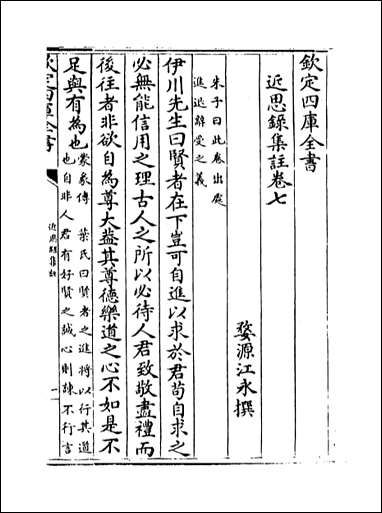 欽定四庫全書
近思錄集註卷七
婺源江永撰
朱子曰此卷出處
進退辭受之義
伊川先生曰賢者在下豈可自進以求於君茍自求之
必無能信用之理古人之所以必待人君致敬盡禮而
後往者非欲自為尊大葢其尊德樂道之心不如是不
足與有為也
蒙彖傳　葉氏曰賢者之進將以行其道
也自非人君有好賢之誠心則諫不行言
近思錄集註
一